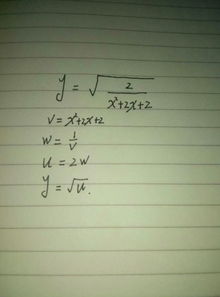 y = √(2/(x²+2x+2))
v = x²+2x+2
w = 1/v
u = 2w
y = √u.